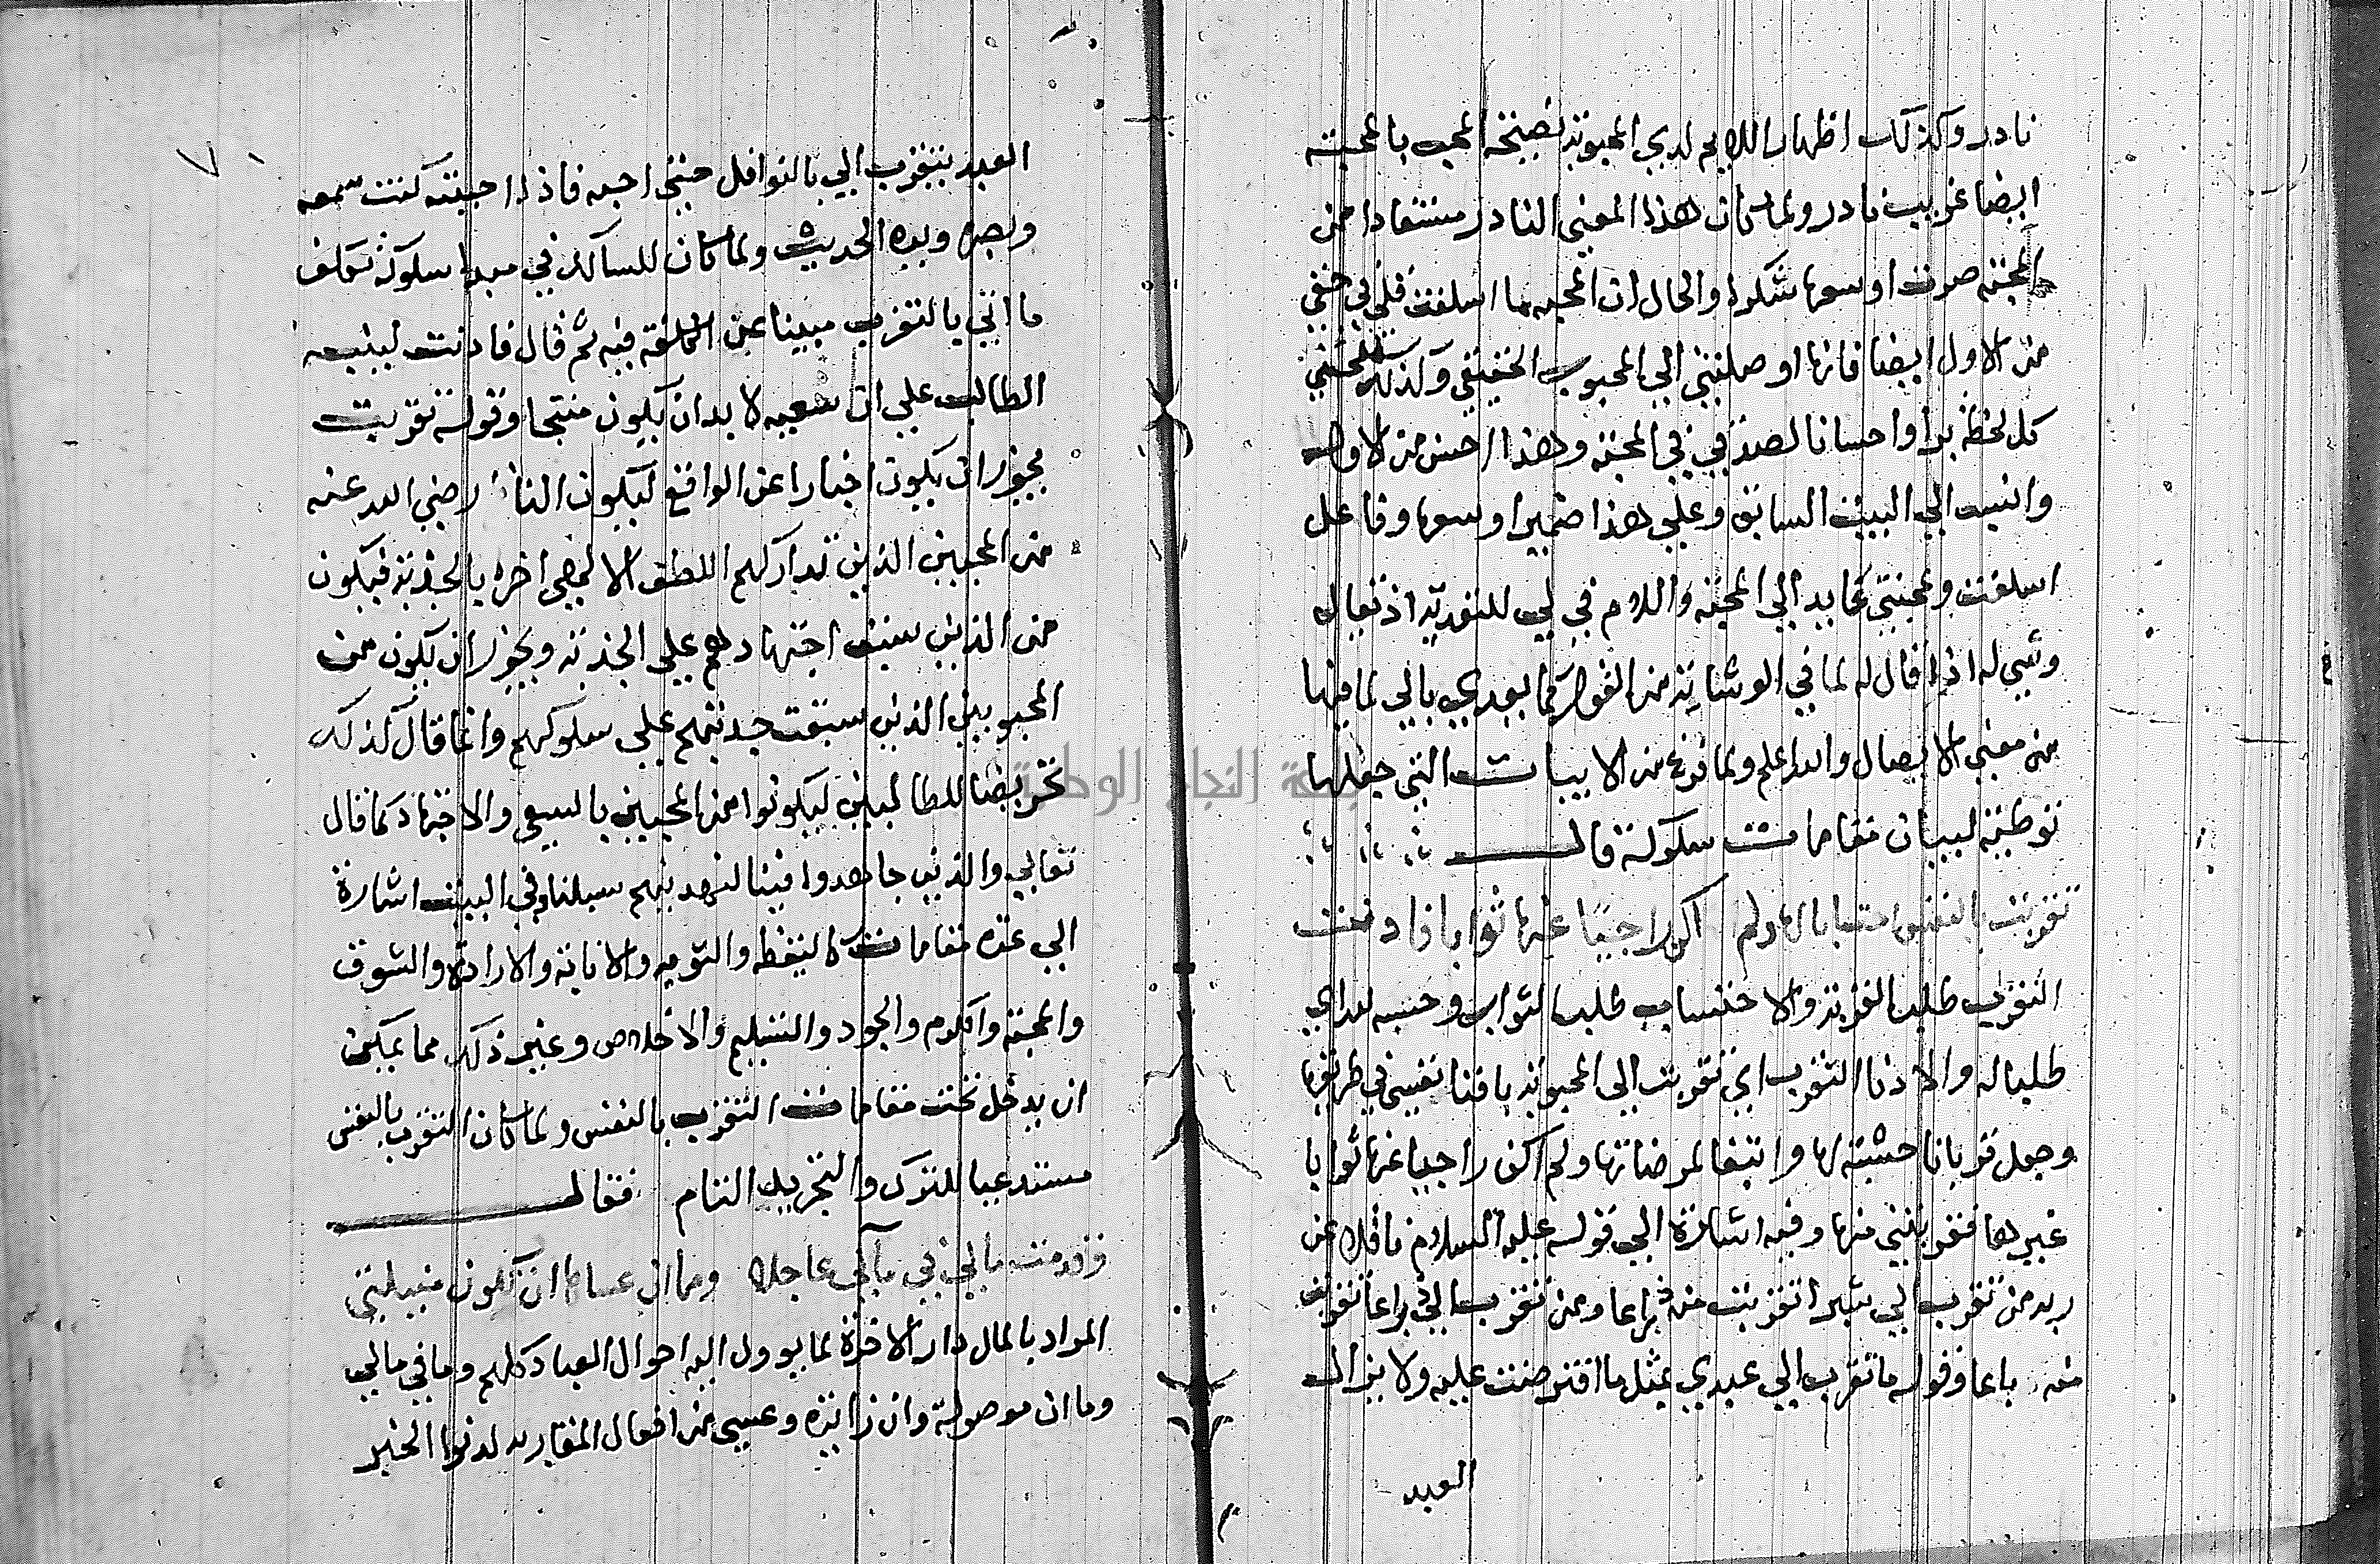 نادر وكذلك اظهار اللايم لدي المحبوبة نصيحة المحب بالمحبة
ايضا غريب نادر ولما كان هذا المعني النادر مستفادا من
المحبة صرت اوسعها شكرا والحال ان المحبه ما اسلفت قلي في حقي
من الاول ايضا فانها اوصلتني الي المحبوب الحقيقي وكذلك تمنحني
كل لحظة برا واحسانا لصدقي في المحبة وهذا احسن من الاول
وانسب الي البيت السابق وعلي هذا ضمير اوسعها وفاعل
اسلفت وتمنحني عايد الي المحبة واللام في لي للتعدية اذ يقال
وشي له اذا قال له لما في الوشاية من القول كما يعدي بالي لما فيها
من معني الايصال والله اعلم ولما فرغ من الابيات التي جعلها
توطئة لبيان مقامات سلوكه قال
تقربت بالنفس احتسابا لها ولم اكن راجيا عنها ثوابا فادنت
التقرب طلب القربة والاحتساب طلب الثواب وحسبه لله اي
طلبا له والادنا التقرب اي تقربت الي المحبوبة بافنا نفسي في طريقها
وجعل قربانا حسبة لها وابتغا لمرضاتها ولم اكن راجيا عنها ثوابا
غيرها فقربتني منها وفيه اشارة الي قوله عليه السلام ناقلا عن
ربه من تقرب الي شبرا تقربت منه ذراعا ومن تقرب الي ذراعا تقربت
منه باعا وقوله ما تقرب الي عبدي بمثل ما افترضت عليه ولا يزال
العبد
٧
العبد يتقرب الي بالنوافل حتي احبه فاذا احببته كنت سمعه
وبصره ويده الحديث ولما كان للسالك في مبدا سلوكه تكلف
ما اتي بالتقرب مبينا عن الكلفة فيه ثم قال فادنت لينبه
الطالب علي ان سعيه لا بد ان يكون منتجا وقوله تقربت
يجوز ان يكون اخبارا عن الواقع ليكون الناظم رضي الله عنه
من المحبين الذين تداركهم اللطف الالهي اخره بالجذبة فيكون
من الذين سبق اجتهادهم علي الجذبة ويجوز ان يكون من
المحبوبين الذين سبقت جذبتهم علي سلوكهم وانما قال كذلك
تحريضا للطالبين ليكونوا من المحبين بالسعي والاجتهاد كما قال
تعالي والذين جاهدوا فينا لنهدينهم سبلنا وفي البيت اشارة
الي عدة مقامات كاليقظة والتوبه والانابة والارادة والشوق
والمحبة والكرم والجود والتسليم والاخلاص وغير ذلك مما يمكن
ان يدخل تحت مقامات التقرب بالنفس ولما كان التقرب بالنفس
مستدعيا للترك والتجريد التام فقال
وقدمت مالي في مآلي عاجلا وما ان عساها ان تكون منيلتي
المراد بالمال دار الاخرة لما يوول اليه احوال العباد كلهم وما في مالي
وما ان موصولة وان زايدة وعسي من افعال المقاربه لدنوا الخبر
جامعة النجاح الوطنية